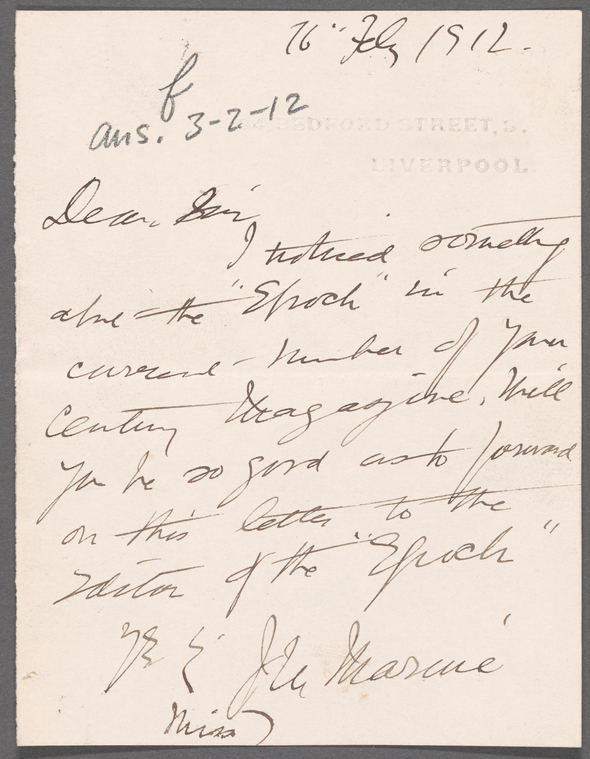 16" Feby 1912.
f
ans. 3-2-12
BEDFORD STREET, S.
LIVERPOOL.
Dear Sir
I noticed something
abve the "Epoch" in the
current number of your
Century Magazine. Will
you be so good as to forward
on this letter to the
Editor of the "Epoch"
Miss